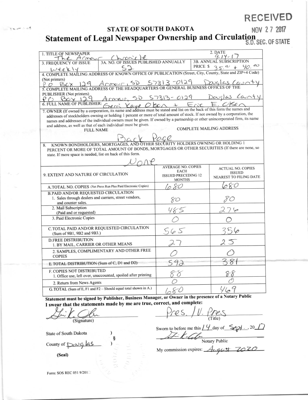 RECEIVED
NOV 27 2017
S.D. SEC. OF STATE
STATE OF SOUTH DAKOTA
Statement of Legal Newspaper Ownership and Circulation
1. TITLE OF NEWSPAPER
The Armour Chronicle
2. DATE
9-14-17
3. FREQUENCY OF ISSUE
Weekly
3A. NO. OF ISSUES PUBLISHED ANNUALLY
52
3B. ANNUAL SUBSCRIPTION
PRICE $
4. COMPLETE MAILING ADDRESS OF KNOWN OFFICE OF PUBLICATION (Street, City, County, State and ZIP+4 Code)
(Not printers)
P.O. Box 129 Armour, SD 57313-0129 Douglas County
5. COMPLETE MAILING ADDRESS OF THE HEADQUARTERS OR GENERAL BUSINESS OFFICES OF THE
PUBLISHER (Not printers)
P.O. Box 129 Armour, SD 57313-0129 Douglas County
6. FULL NAME OF PUBLISHER
7. OWNER (If owned by a corporation, its name and address must be stated and also
FULL NAME
COMPLETE MAILING ADDRESS
Back Page
8. KNOWN BONDHOLDERS, MORTGAGEES, AND OTHER SECURITY HOLDERS OWNING OR HOLDING 1
PERCENT OR MORE OF TOTAL AMOUNT OF BONDS, MORTGAGES OR OTHER SECURITIES (If there are none, so
state. If more space is needed, list on back of this form).
NONE
9. EXTENT AND NATURE OF CIRCULATION
AVERAGE NO. COPIES
EACH
ISSUED PRECEDING 12
MONTHS
ACTUAL NO. COPIES
ISSUED
NEAREST TO FILING DATE
A. TOTAL NO. COPIES (Net Press Run Plus Paid Electronic Copies)
680
680
B. PAID AND/OR REQUESTED CIRCULATION
1. Sales through dealers and carriers, street vendors,
and counter sales.
80
80
2. Mail Subscription
(Paid and or requested)
485
276
3. Paid Electronic Copies
0
0
C. TOTAL PAID AND/OR REQUESTED CIRCULATION
(Sum of 9B1, 9B2 and 9B3.)
565
356
D. FREE DISTRIBUTION
1. BY MAIL, CARRIER OR OTHER MEANS
27
25
2. SAMPLES, COMPLIMENTARY AND OTHER FREE
COPIES
0
0
E. TOTAL DISTRIBUTION (Sum of C, D1 and D2)
592
381
F. COPIES NOT DISTRIBUTED
1. Office use, left over, unaccounted, spoiled after printing
88
88
2. Return from News Agents
0
0
G. TOTAL (Sum of E, F1 and F2 - Should equal total shown in A.)
680
469
Statement must be signed by Publisher, Business Manager, or Owner in the presence of a Notary Public
I swear that the statements made by me are true, correct, and complete:
(Signature)
(Title)
State of South Dakota )
§
County of Douglas )
(Seal)
Sworn to before me this 14 day of Sept 2017
Notary Public
My commission expires: August 2020